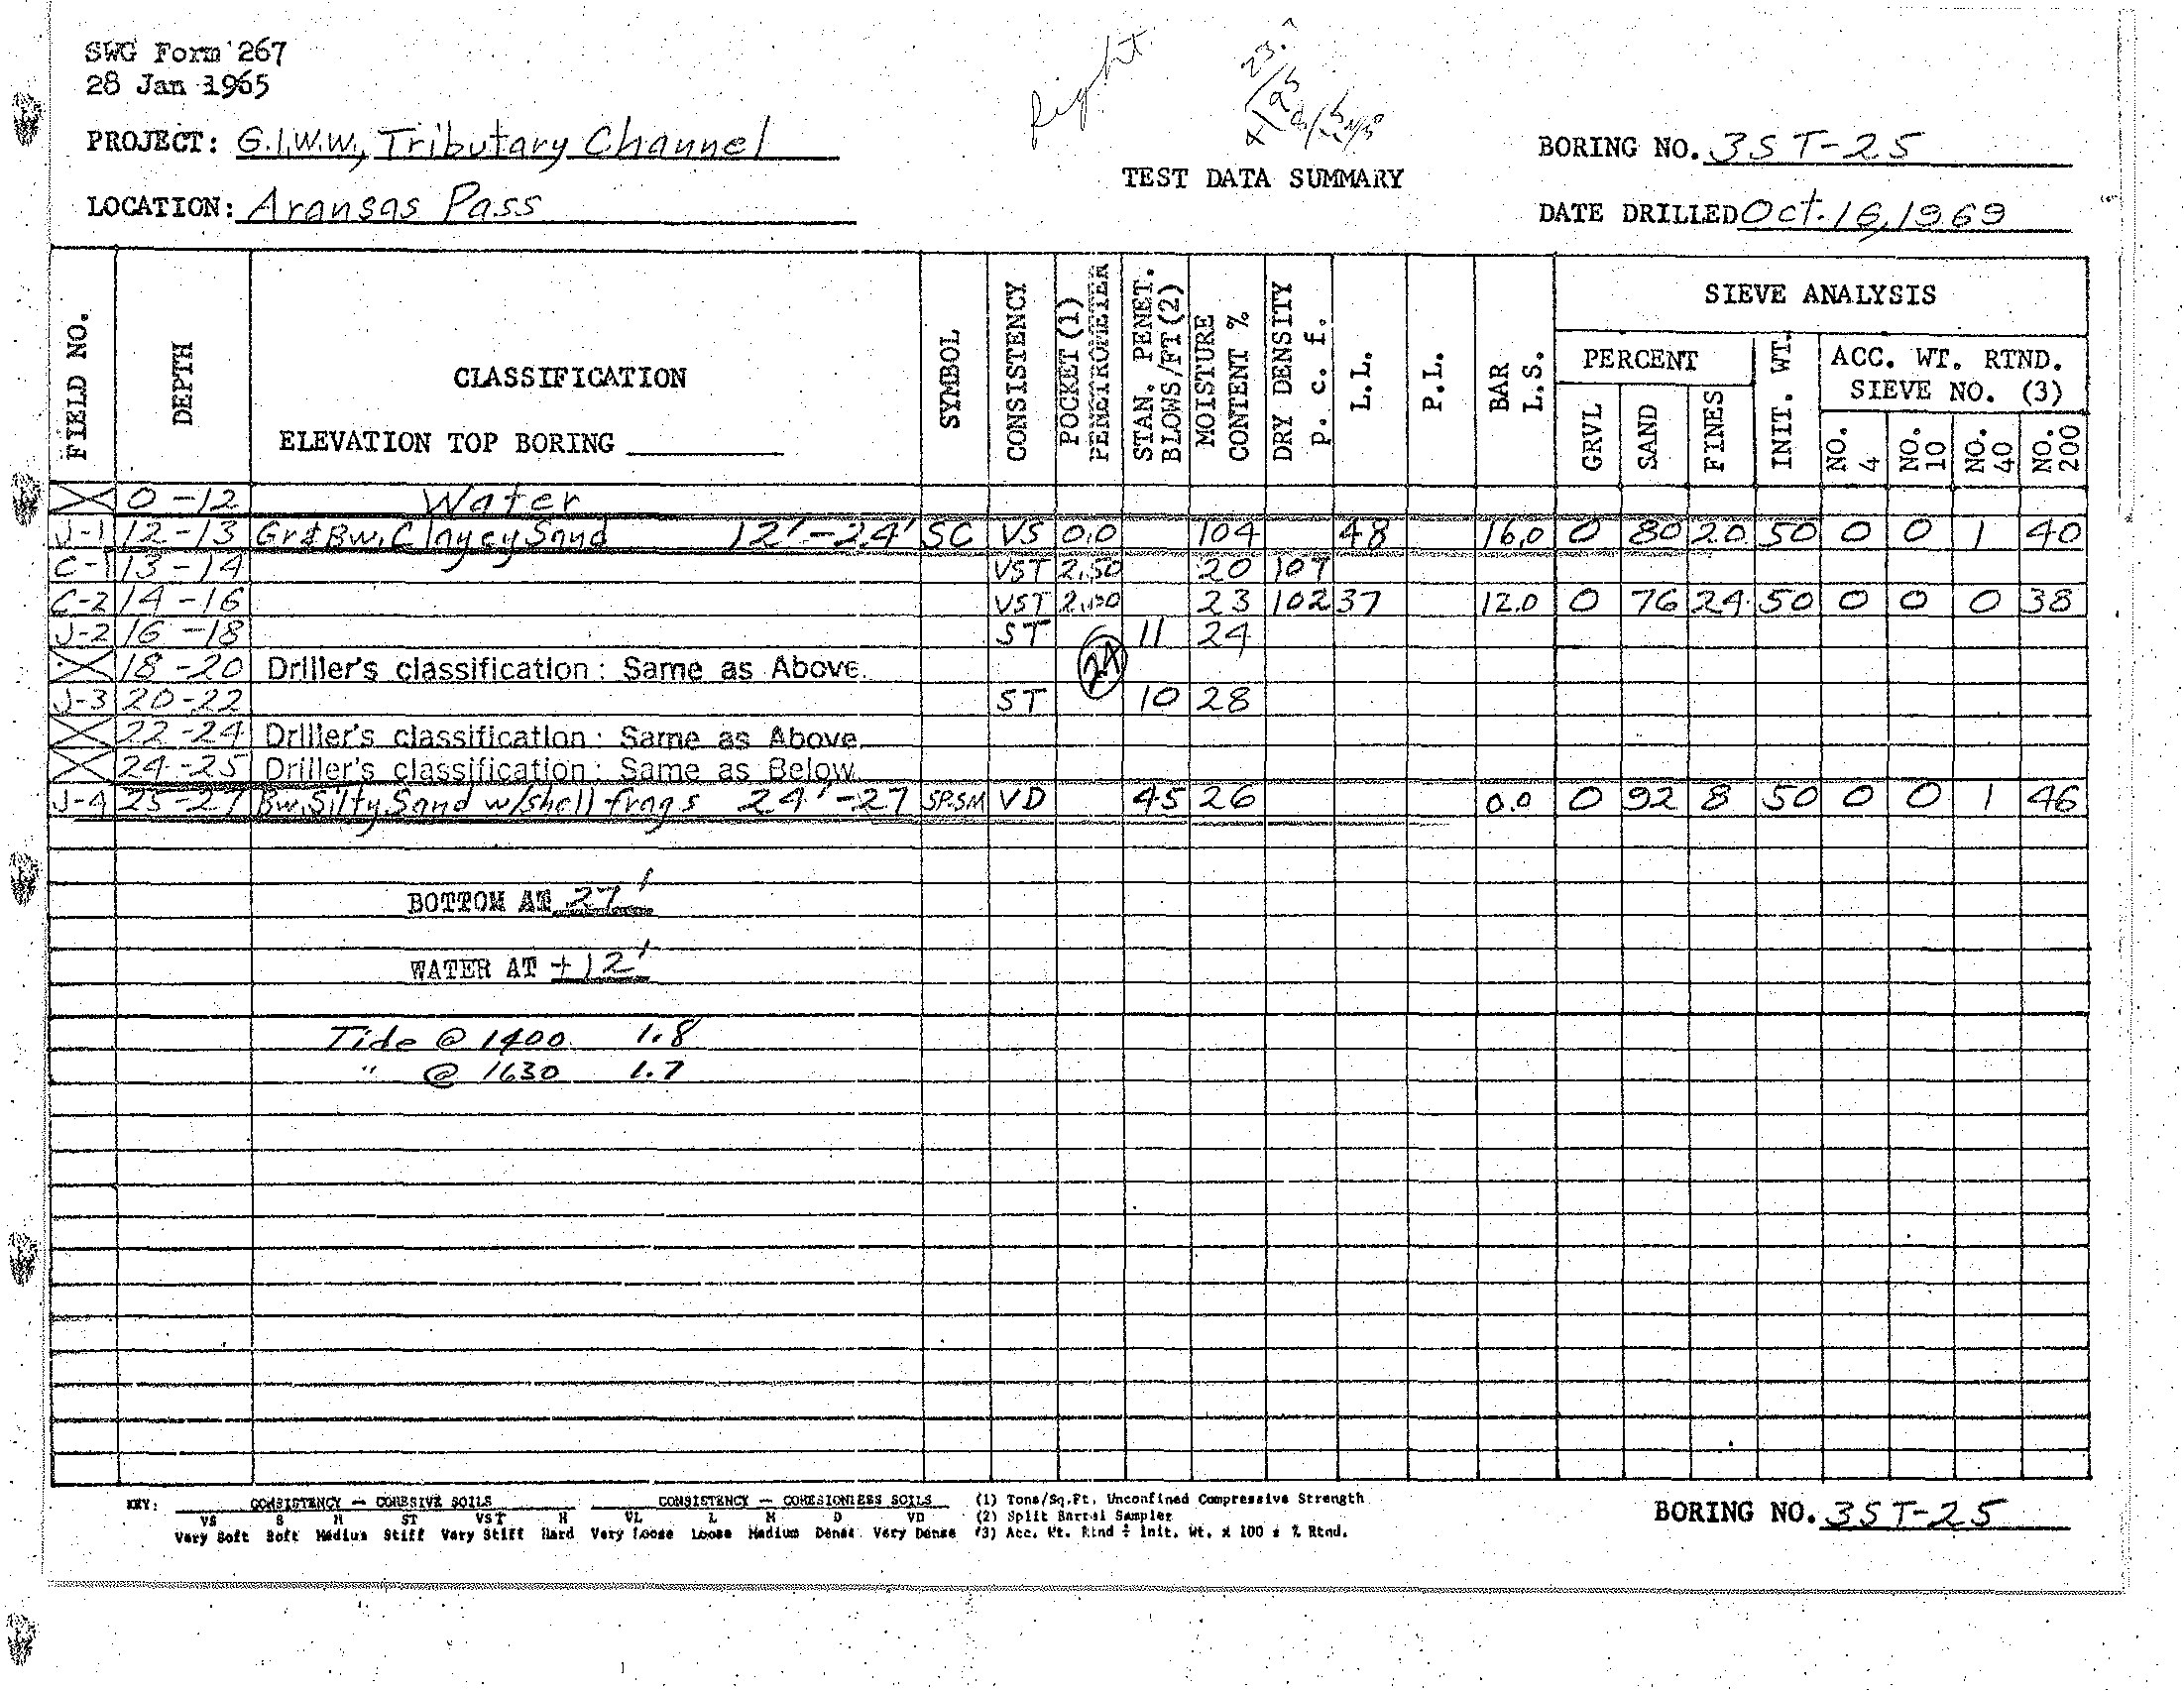 SWG Form 267
28 Jan 1965
right
PROJECT: G.I.W.W., Tributary Channel
BORING NO. 3ST-25
TEST DATA SUMMARY
LOCATION: Aransas Pass
DATE DRILLED Oct. 16, 1969
FIELD NO. DEPTH CLASSIFICATION SYMBOL CONSISTENCY POCKET (1) PENETROMETER STAN. PENET. BLOWS/FT (2) MOISTURE CONTENT % DRY DENSITY p. c. f. L.L. P.L. BAR L.S. SIEVE ANALYSIS
PERCENT INIT. WT. ACC. WT. RTND. SIEVE NO. (3)
ELEVATION TOP BORING
GRVL SAND FINES NO. 4 NO. 10 NO. 40 NO. 200
0-12 Water
J-1 12-13 Gr & Bw, Clayey Sand 12'-24' SC VS 0.0 104 48 16.0 0 80 20 50 0 0 1 40
C-1 13-14 VST 2.50 20 107
C-2 14-16 VST 2.00 23 102 37 12.0 0 76 24 50 0 0 0 38
J-2 16-18 ST 11 24
18-20 Driller's classification: Same as Above.
J-3 20-22 ST 10 28
22-24 Driller's classification: Same as Above.
24-25 Driller's classification: Same as Below.
J-4 25-27 Bw, Silty Sand w/shell frags 24'-27 SP-SM VD 45 26 0.0 0 92 8 50 0 0 1 46
BOTTOM AT 27'
WATER AT +12'
Tide @ 1400 1.8
" @ 1630 1.7
KEY: CONSISTENCY - COHESIVE SOILS CONSISTENCY - COHESIONLESS SOILS (1) Tons/Sq.Ft. Unconfined Compressive Strength
VS S M ST VST H VL L M D VD (2) Split Barrel Sampler
Very Soft Soft Medium Stiff Very Stiff Hard Very Loose Loose Medium Dense Very Dense (3) Acc. Wt. Rtnd ÷ Init. Wt. x 100 = % Rtnd.
BORING NO. 3ST-25